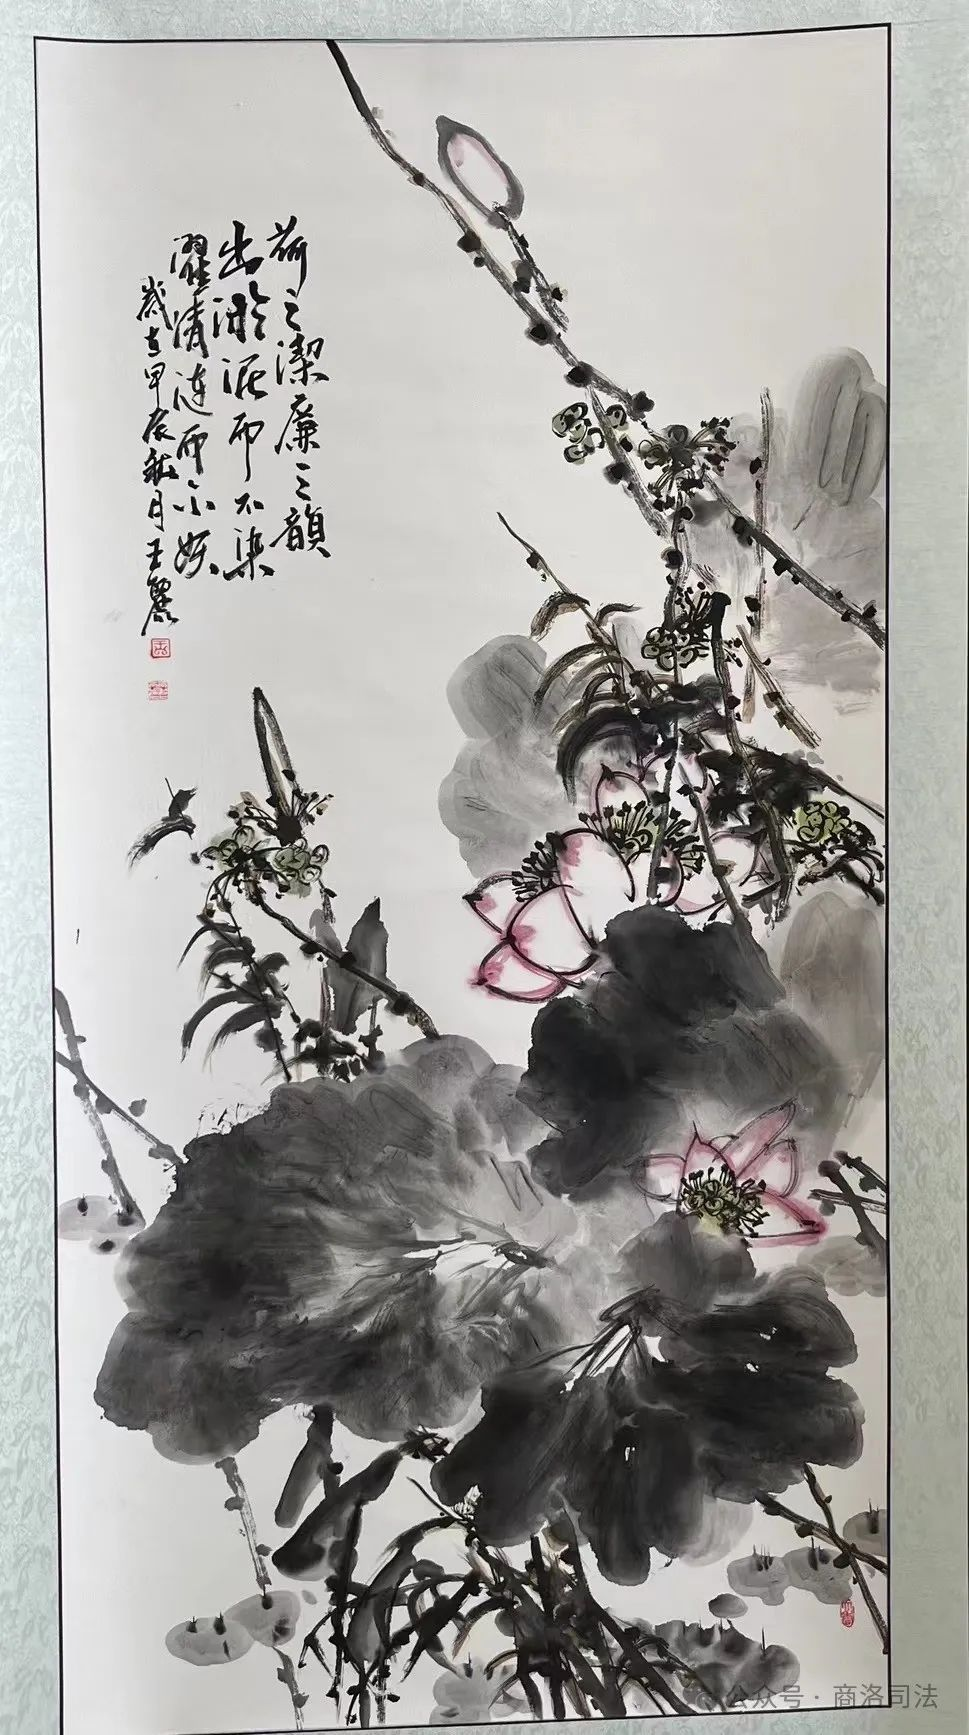 荷之潔廉之韻
出淤泥而不染
濯清漣而不妖
歲在甲辰秋月王麗
公众号·商洛司法